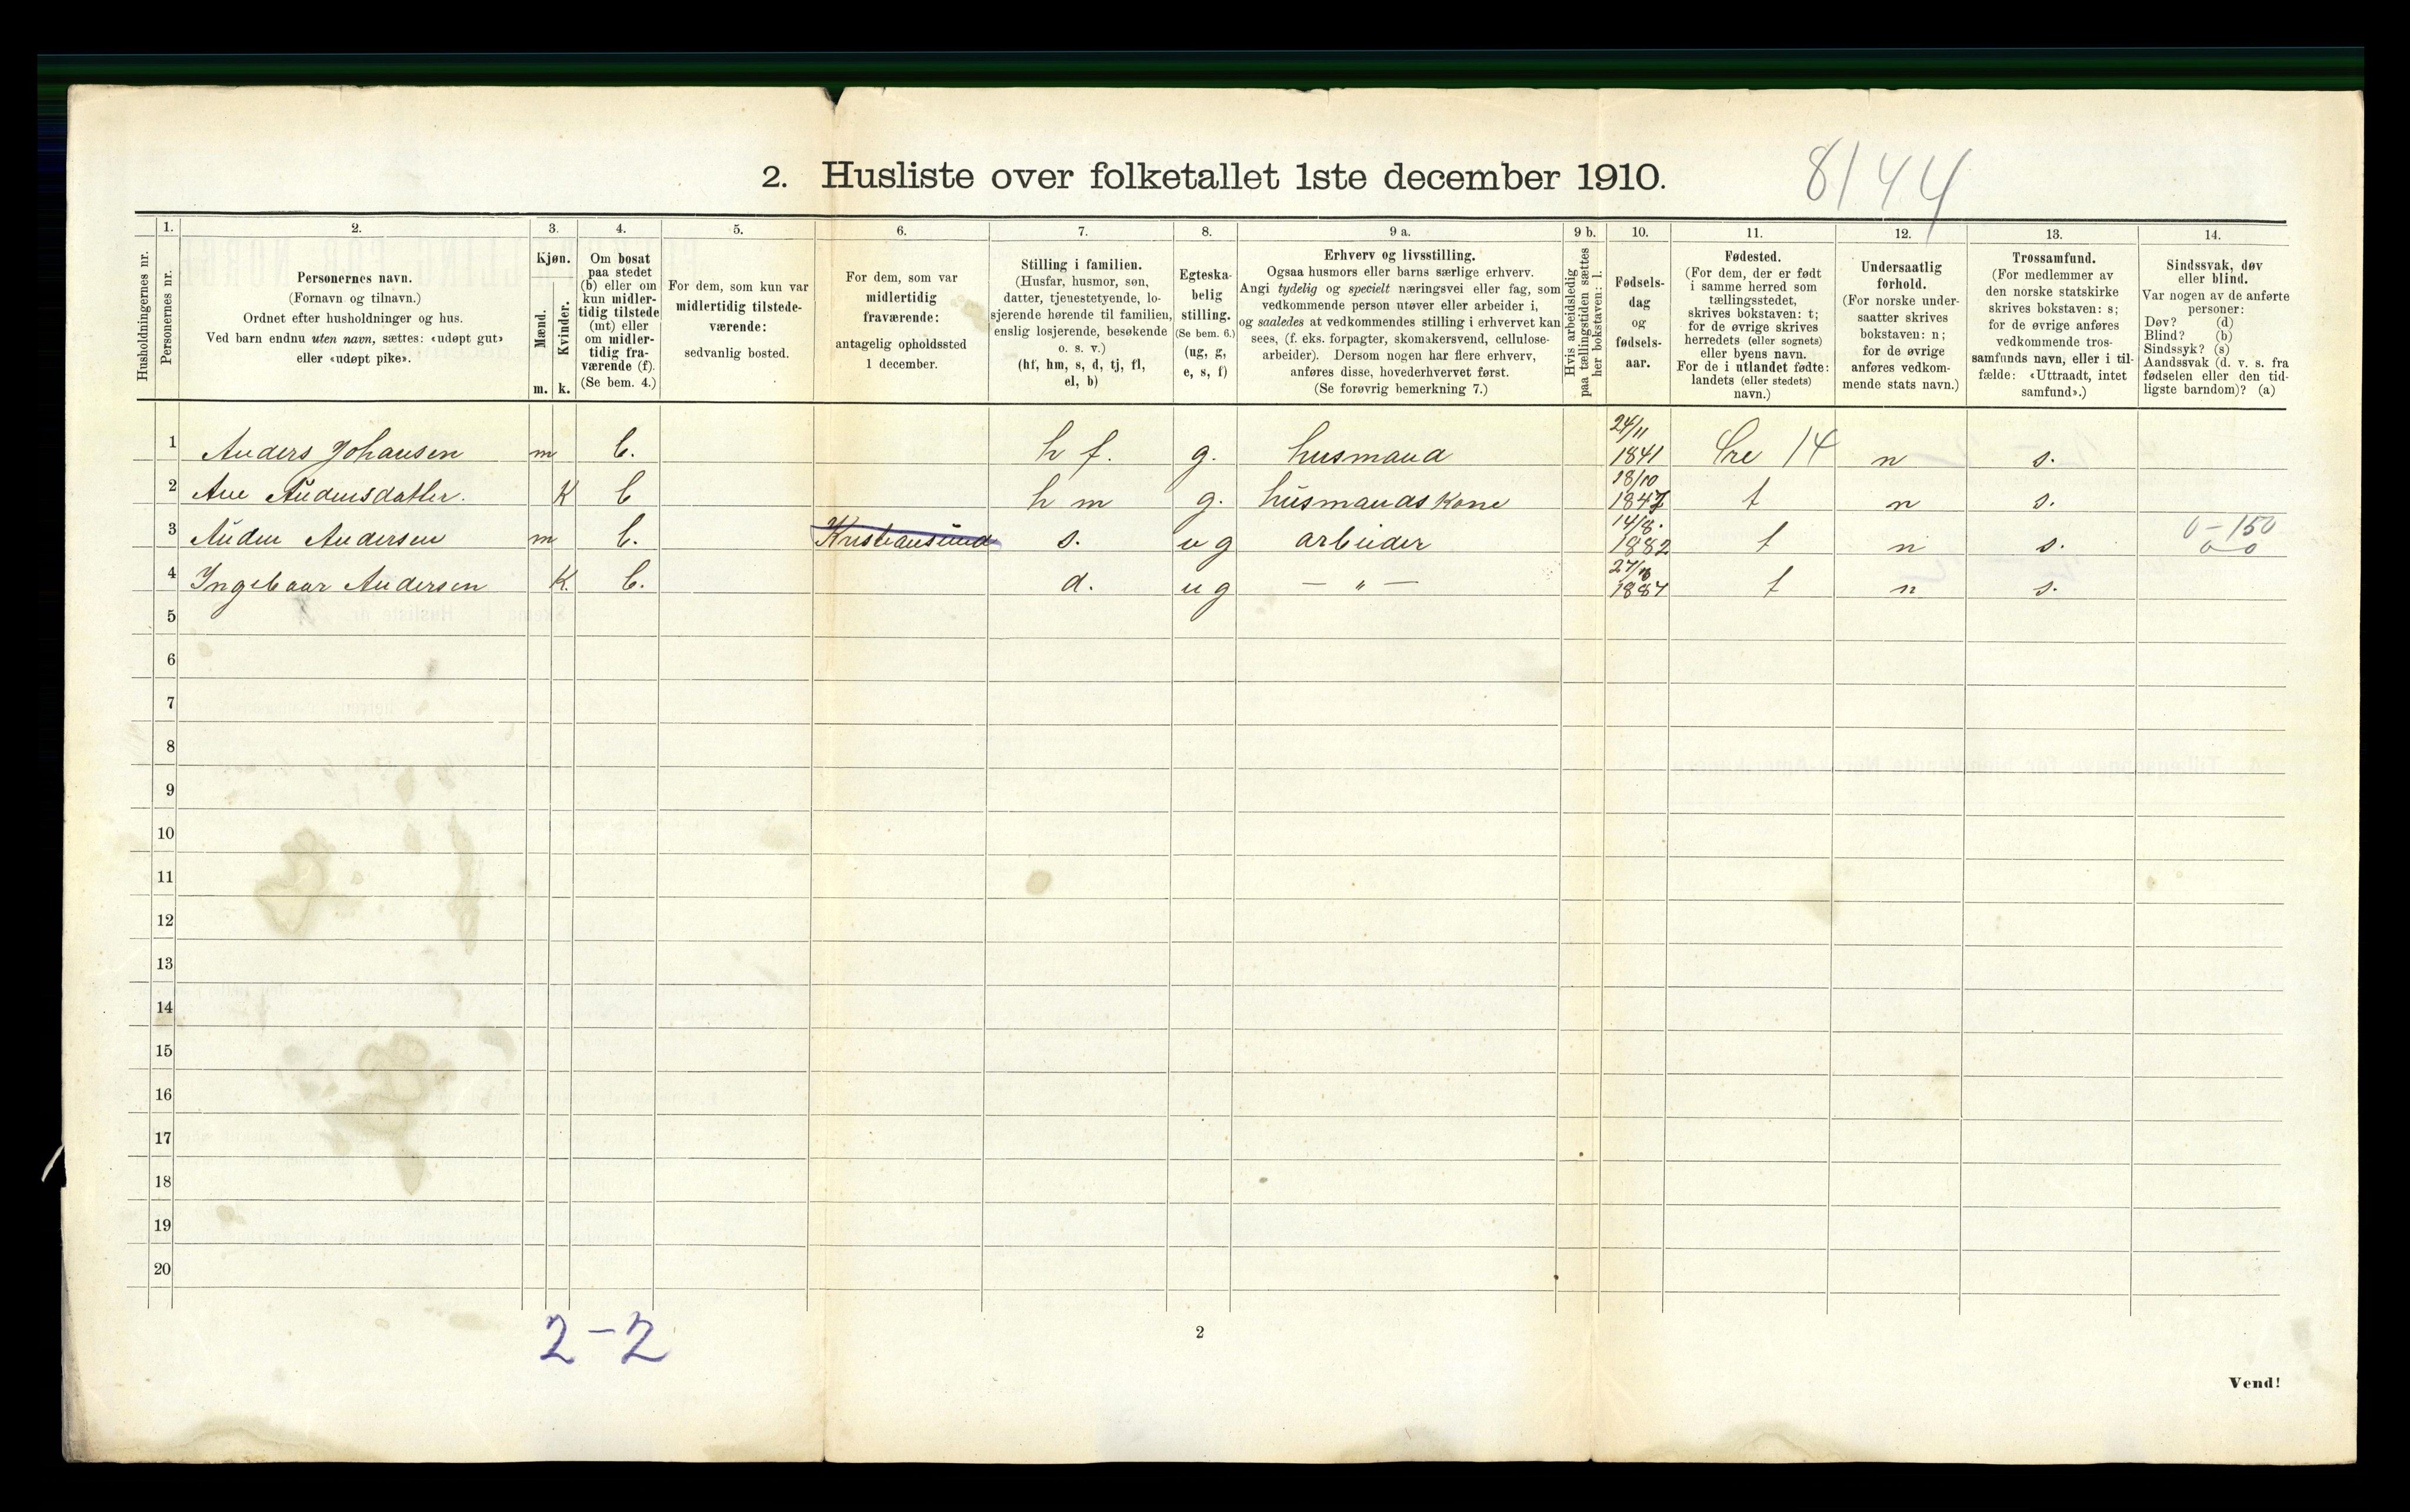 2. Husliste over folketallet 1ste december 1910.
8144
Husholdningernes nr.
1.
Personernes nr.
2.
Personernes navn.
(Fornavn og tilnavn.)
Ordnet efter husholdninger og hus.
Ved barn endnu uten navn, sættes: «udøpt gut»
eller «udøpt pike».
3.
Kjøn.
Mænd.
Kvinder.
m. k.
4.
Om bosat
paa stedet
(b) eller om
kun midler-
tidig tilstede
(mt) eller
om midler-
tidig fra-
værende (f).
(Se bem. 4.)
5.
For dem, som kun var
midlertidig tilstede-
værende:
sedvanlig bosted.
6.
For dem, som var
midlertidig
fraværende:
antagelig opholdssted
1 december.
7.
Stilling i familien.
(Husfar, husmor, søn,
datter, tjenestetyende, lo-
sjerende hørende til familien,
enslig losjerende, besøkende
o. s. v.)
(hf, hm, s, d, tj, fl,
el, b)
8.
Egteska-
belig
stilling.
(Se bem. 6.)
(ug, g,
e, s, f)
9 a.
Erhverv og livsstilling.
Ogsaa husmors eller barns særlige erhverv.
Angi tydelig og specielt næringsvei eller fag, som
vedkommende person utøver eller arbeider i,
og saaledes at vedkommendes stilling i erhvervet kan
sees, (f. eks. forpagter, skomakersvend, cellulose-
arbeider). Dersom nogen har flere erhverv,
anføres disse, hovederhvervet først.
(Se forøvrig bemerkning 7.)
9 b.
Hvis arbeidsledig
paa tællingstiden sættes
her bokstaven: l.
10.
Fødsels-
dag
og
fødsels-
aar.
11.
Fødested.
(For dem, der er født
i samme herred som
tællingsstedet,
skrives bokstaven: t;
for de øvrige skrives
herredets (eller sognets)
eller byens navn.
For de i utlandet fødte:
landets (eller stedets)
navn.)
12.
Undersaatlig
forhold.
(For norske under-
saatter skrives
bokstaven: n;
for de øvrige
anføres vedkom-
mende stats navn.)
13.
Trossamfund.
(For medlemmer av
den norske statskirke
skrives bokstaven: s;
for de øvrige anføres
vedkommende tros-
samfunds navn, eller i til-
fælde: «Uttraadt, intet
samfund».)
14.
Sindssvak, døv
eller blind.
Var nogen av de anførte
personer:
Døv? (d)
Blind? (b)
Sindssyk? (s)
Aandssvak (d. v. s. fra
fødselen eller den tid-
ligste barndom)? (a)
1 Anders Johansen m b. h f. g. husmand 24/11 1841 14 n s.
2 Ane Andersdatter. K b h m g. husmandskone 18/10 1847 t n s.
3 Anden Andersen m b. Kristiansund s. u g arbeider 14/8. 1882 t n s. 0-150
0-0
4 Ingebaar Andersen K. b. d. u g — " — 1887 t n s.
5
6
7
8
9
10
11
12
13
14
15
16
17
18
19
20
2-2
2
Vend!